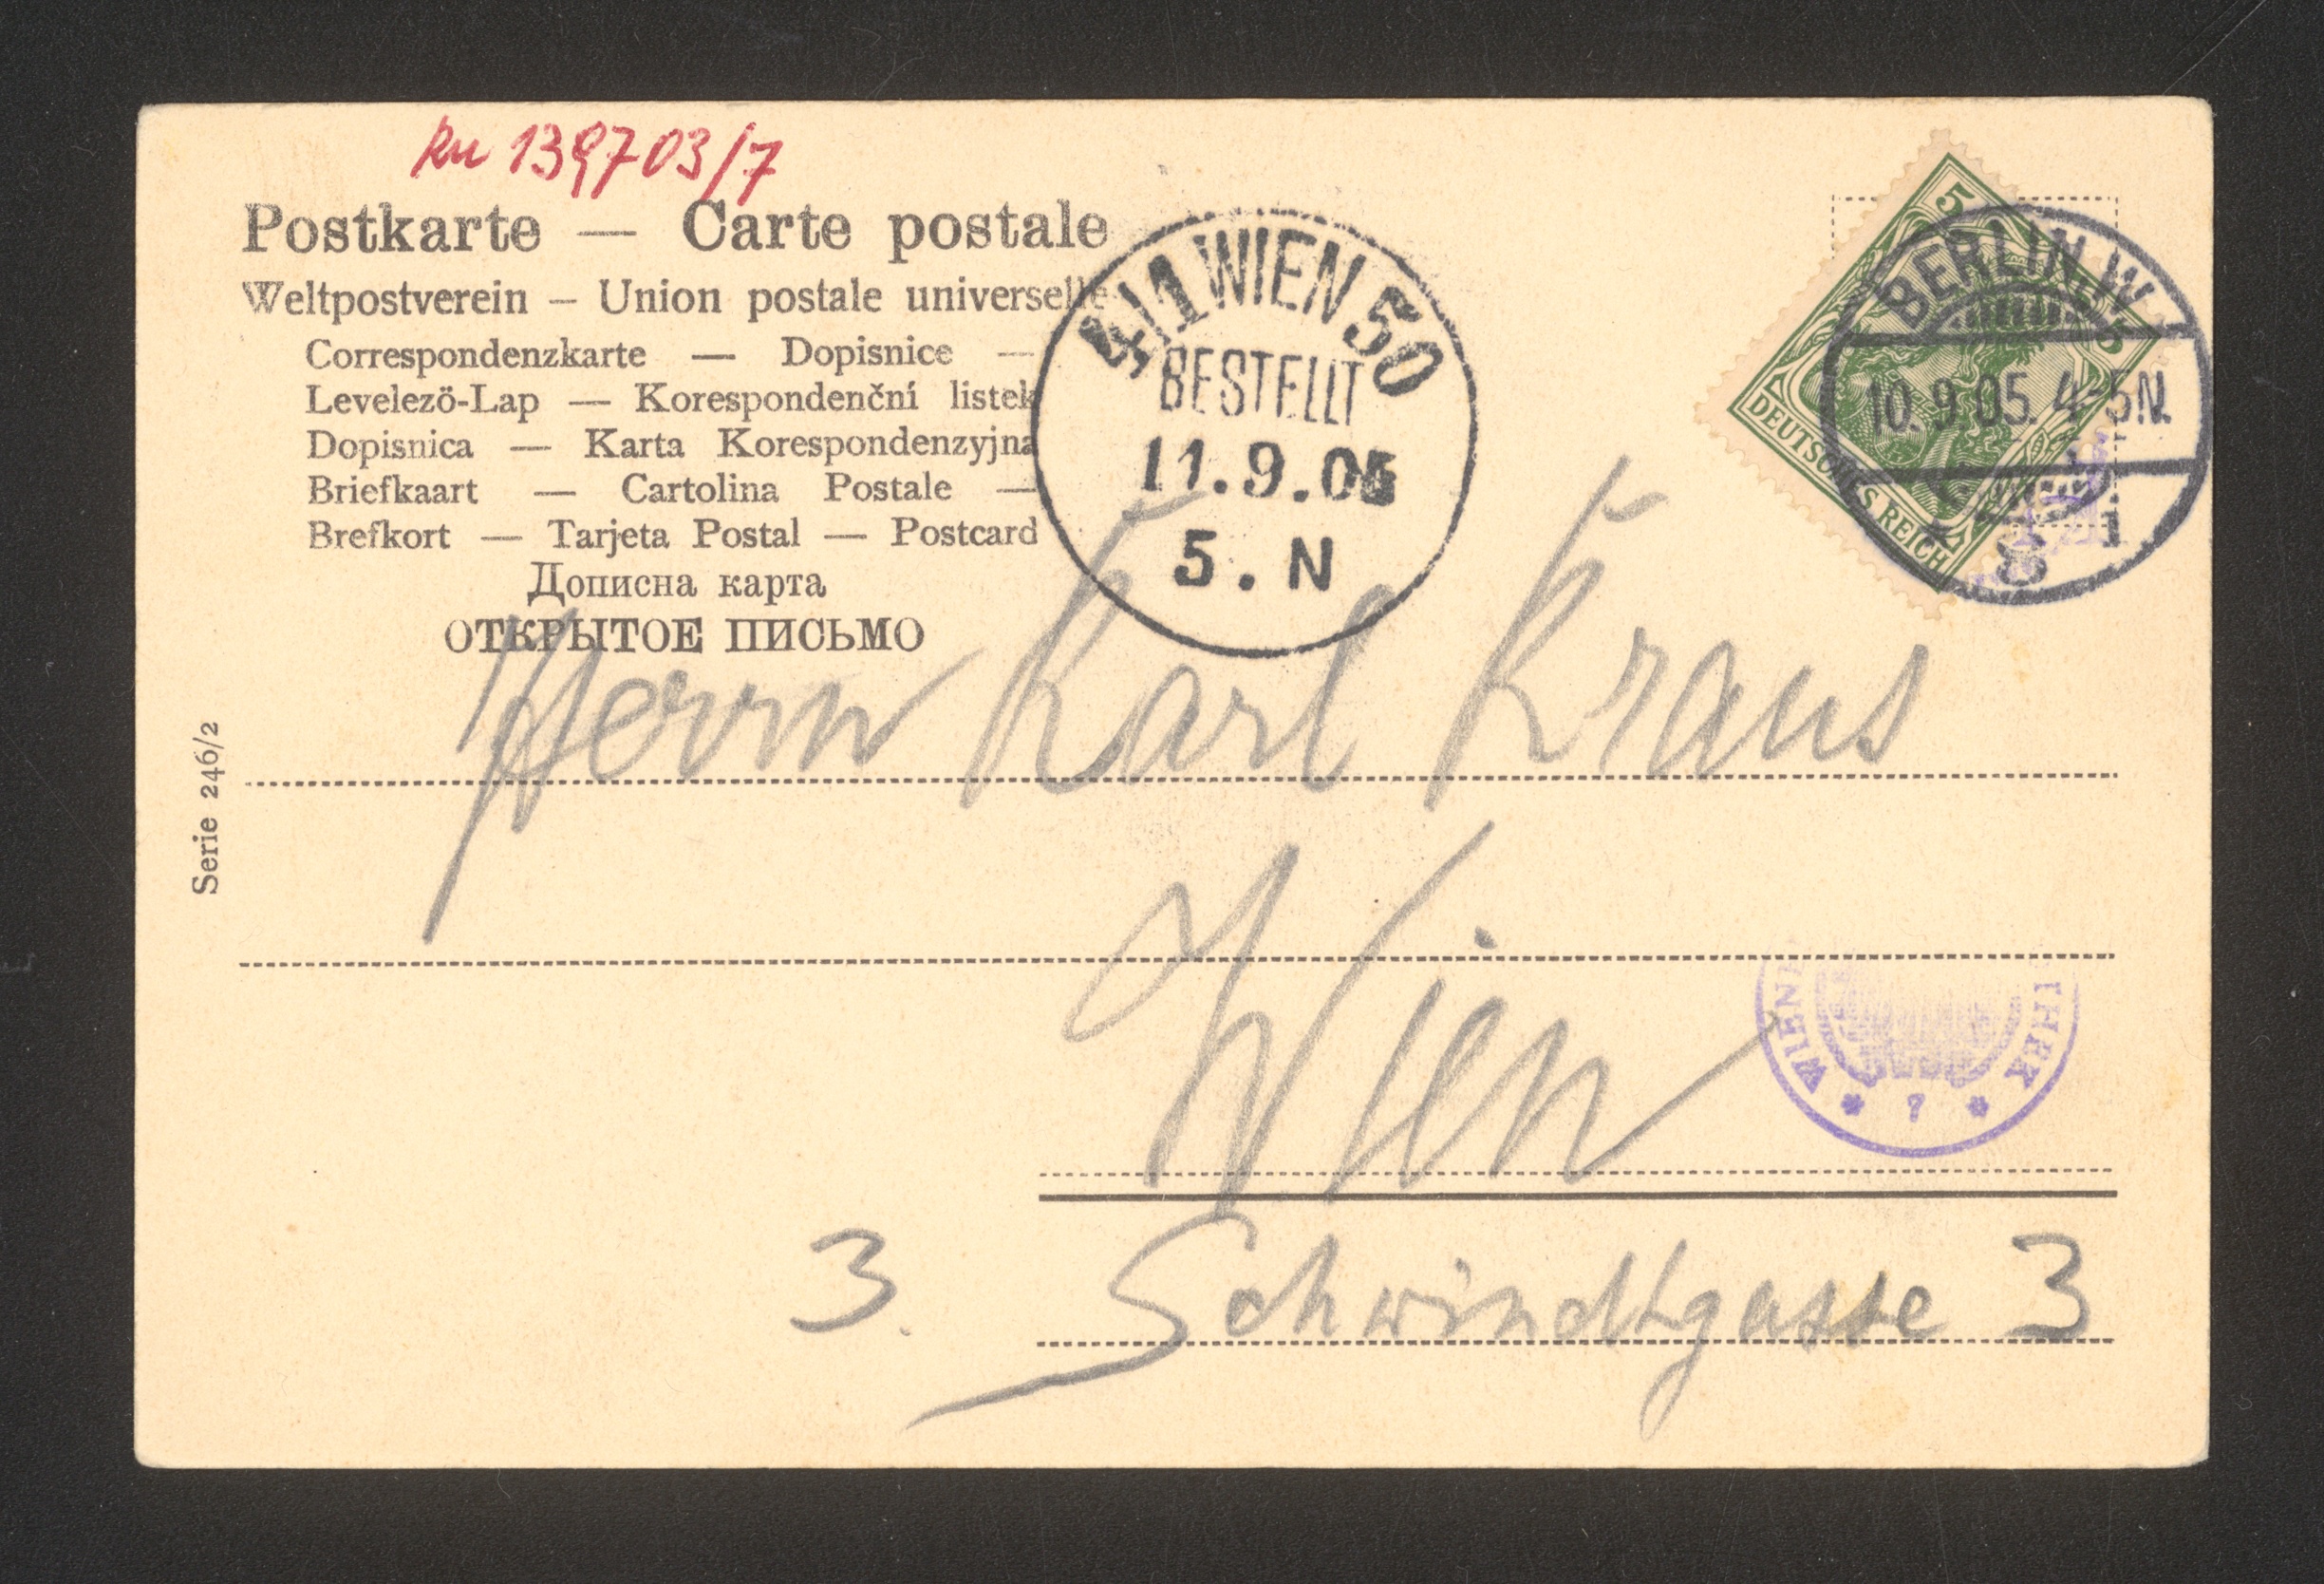 RN 139703/7
Postkarte — Carte postale
Weltpostverein – Union postale universelle
Correspondenzkarte — Dopisnice —
Levelezö-Lap — Korespondenční listek
Dopisnica — Karta Korespondenzyjna
Briefkaart — Cartolina Postale —
Brefkort — Tarjeta Postal — Postcard
Дописна карта
ОТКРЫТОЕ ПИСЬМО
4/1 WIEN 50
BESTELLT
11.9.05
5. N
5 5
DEUTSCHES REICH
BERLIN W.
10.9.05. 4-5N.
8
Herrn Karl Kraus
Wien
3. Schwindtgasse 3
Serie 246/2
WIEN
* 7 *